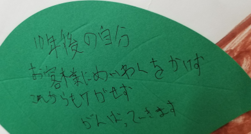 10年後の自分
お客様にめいわくをかけず
これからもけがせず
がんばっていきます